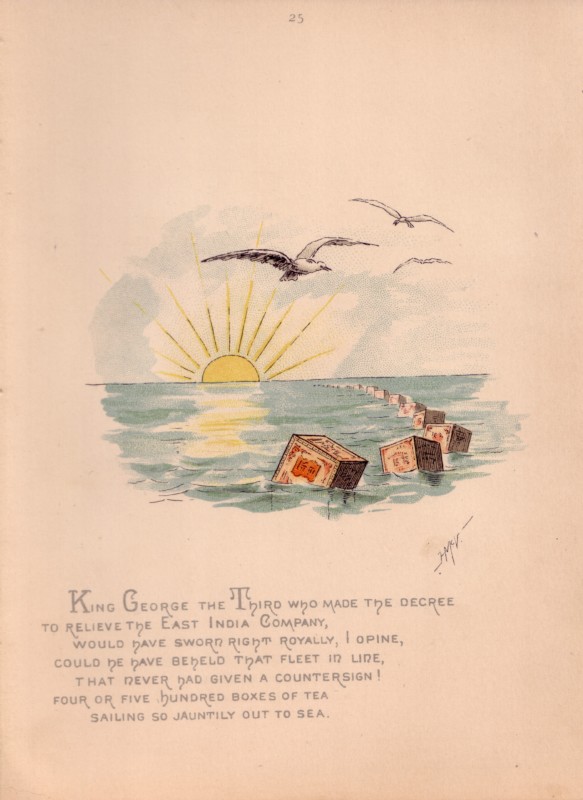 25
H.McV.
King George the Third who made the decree
to relieve the East India Company,
would have sworn right royally, I opine,
could he have beheld that fleet in line,
that never had given a countersign!
four or five hundred boxes of tea
sailing so jauntily out to sea.